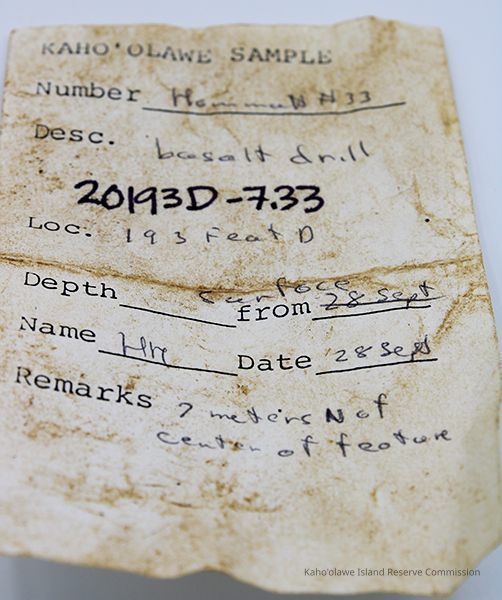 KAHO'OLAWE SAMPLE
Number Hommon #33
Desc. basalt drill
20193D-7.33
Loc. 193 Feat D
Depth surface from 28 Sept
Name HH Date 28 Sept
Remarks 7 meters N of
center of feature
Kaho'olawe Island Reserve Commission